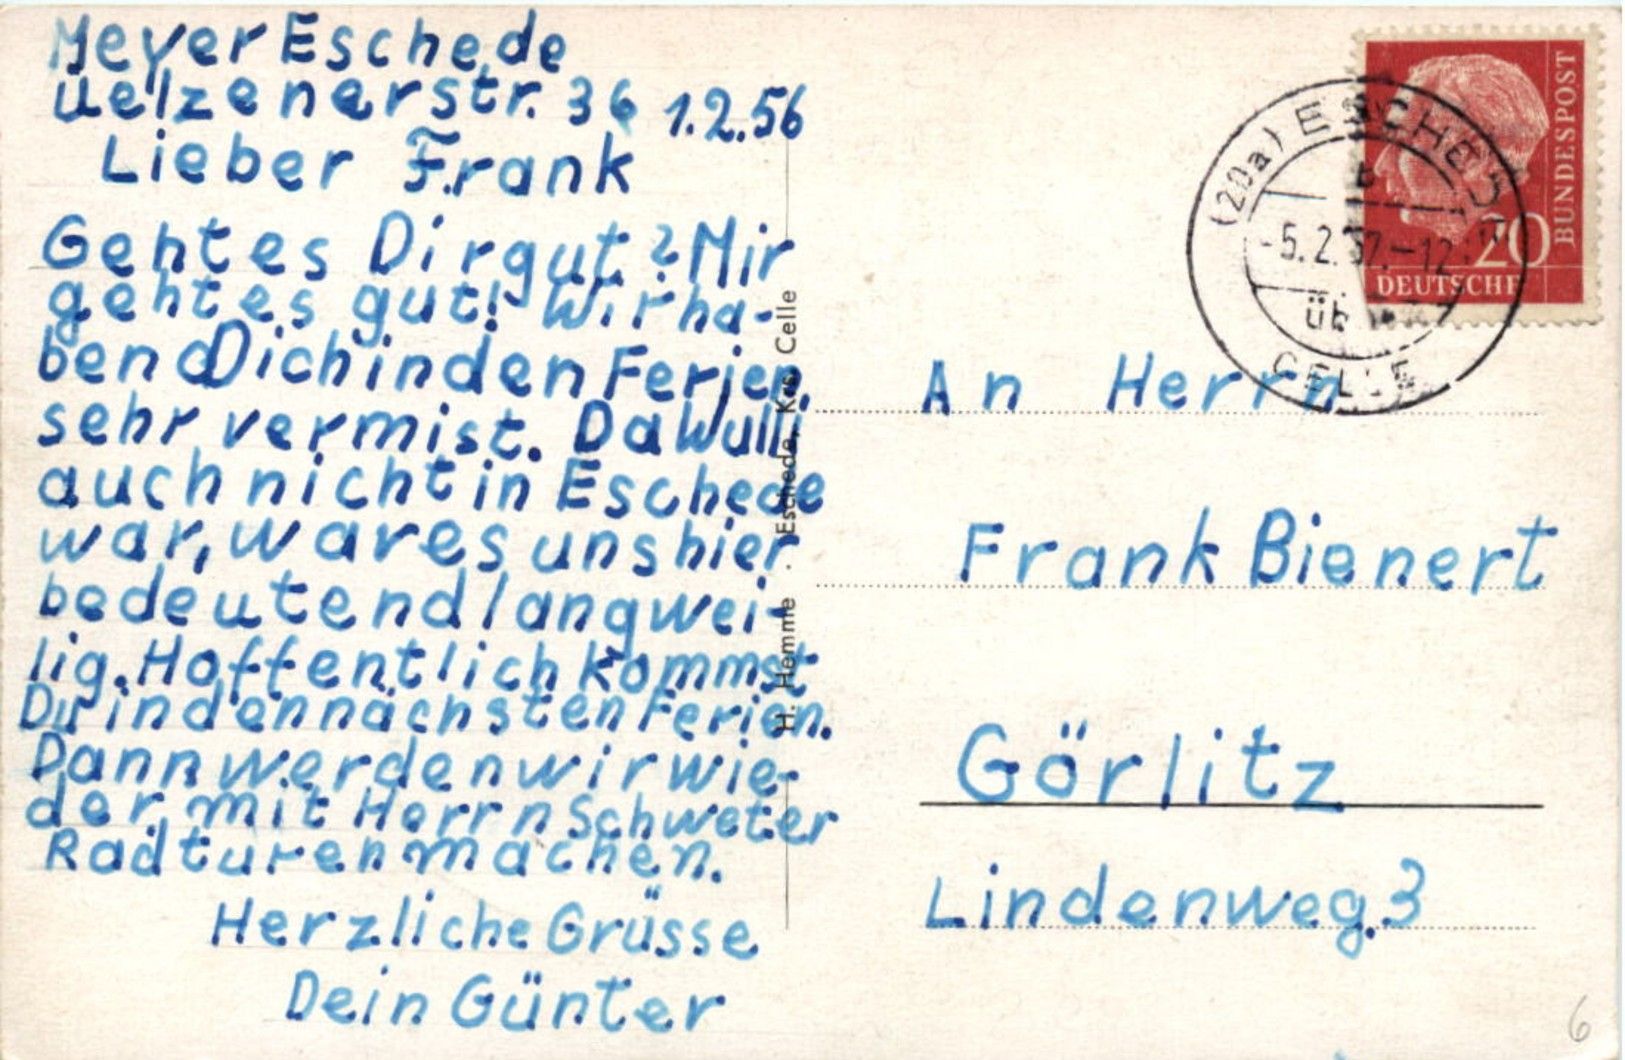 Meyer Eschede
Uelzenerstr. 36 1.2.56
Lieber Frank
Geht es Dir gut? Mir
geht es gut! Wir ha-
ben Dich in den Ferien
sehr vermist. Da Wulli
auch nicht in Eschede
war, war es uns hier
bedeutend langwei-
lig. Hoffentlich kommst
Du in den nächsten Ferien.
Dann werden wir wie-
der mit Herrn Schweter
Radturen machen.
Herzliche Grüsse
Dein Günter
H. Hemme . Eschede, Krs. Celle
(20a) ESCHEDE
b
-5.2.57.-12
üb
CELLE
20
DEUTSCHE
BUNDESPOST
An Herrn
Frank Bienert
Görlitz
Lindenweg.3
6